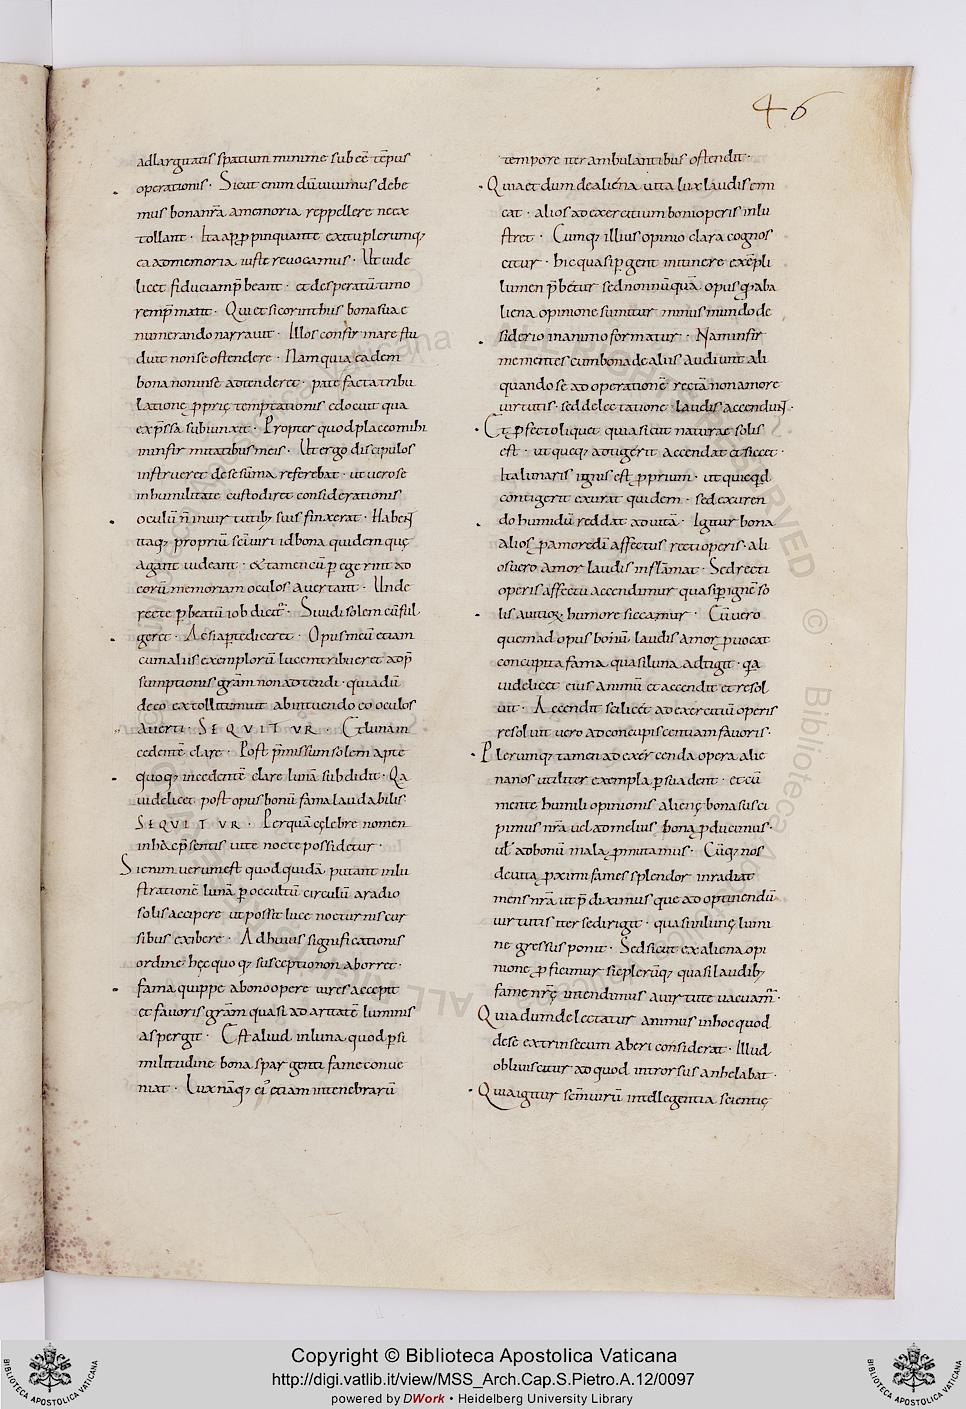 46
adlargitatis spatium minime sub ee tēpus
operationis · Sicut enim dū vivimus debe
mus bona nr̄a a memoria reppellere ne ex
tollant · Ita app̱ropinquante exitu plerumq;
ea ad memoria iuste revocamus · Ut vide
licet fiduciam p̄beant · et desperatū timo
rem p̄mant · Qui et si corinthiis bona sua e
numerando narravit · Illos confir mare stu
duit non se ostendere · Nam quia eadem
bona non in se adtenderet · pate facta tribu
latione p̱ropriȩ temptationis edocuit qua
exp̄ssa subiunxit · Propter quod placeo mihi
in infir mitatibus meis · Ut ergo discipulos
instrueret de se sūma referebat · ut vero se
in humilitate custodiret considerationis
oculū n̄ in virtutib; suis finxerat · Habent
itaq; propriū sc̄i viri id bona quidem quȩ
agant videant · et tamen cū p̱egerint ad
eorū memoriam oculos avertant · Unde
recte p̱ beatū iob dicit̄ · Si vidi solem cū ful
geret · Ac si ap̱te diceret · Opus meū etiam
cum aliis exemplorū lucem tribueret ad p̄
sumptionis grām non adtendi · quia dū
de eo extolli timui ab intuendo eo oculos
averti · SEQUITUR · Et lunam
cedentē clare · Post p̄missum solem apte
quoq; incedentē clare lunā subdidit · Qa
videlicet post opus bonū fama laudabilis
SEQUITUR · Per quā cȩlebre nomen
in hac p̄sentis vite nocte possidetur ·
Si enim verum est quod quidā putant inlu
strationē lunā p̱ occultū circulū a radio
solis accipere ut possit luce nocturnis cur
sibus exibere · Ad huius significationis
ordinē hȩc quoq; susceptio non aborret ·
fama quippe a bono opere vires accepit
et favoris grām quasi ad aritatē luminis
aspergit · Est aliud in luna quod p̱ si
militudine bona spargenti fame conve
niat · Lux nāq; ei' etiam in tenebrarū
tempore iter ambulantibus ostendit ·
Quia et dum de aliena vita lux laudis em
cat · alios ad exercitium boni operis inlu
stret · Cumq; illius opinio clara cognos
citur · hic quasi p̱gent in itinere exēpli
lumen p̄betur sed nonnūquā opus q'd aba
liena opinione sumitur minus mundo de
siderio in animo formatur · Nam infir
me mentes cum bona de aliis audiunt ali
quando se ad operationē rectā non amore
virtutis · sed delectatione laudis accendunt ·
Et p̱fecto liquet quia sicut naturae solis
est · ut queq; adtigerit accendat et siccet ·
Ita lunaris ignis est p̱roprium · ut quicq̄d
contigerit exurat quidem · sed exuren
do humidū reddat ad vitā · Igitur bona
alios p̱ amorē dī affectus recti operis · ali
os vero amor laudis inflāmat · Sed recti
operis affectu accendimur quasi p̱ ignē so
lis a vitior̄ humore siccamur · Cū vero
quem ad opus bonū laudis amor p̱rovocat
concupita fama quasi luna adtigit · q̄a
videlicet eius animū et accendit et resol
vit · Accendit scilicet ad exercitiū operis
resolvit vero ad concupiscentiam favoris ·
Plerumq; tamen ad exercenda opera alie
na nos utiliter exempla p̱suadent · et cū
mente humili opinionis alienȩ bona susci
pimus nr̄a vel ad melius bona p̱ducimus ·
ul' ad bonū mala p̱mutamus · Cūq; nos
de vita p̱roximi fames splendor inradiat
mens nr̄a ut p̄diximus que ad optinendū
virtutis iter se dirigit · quasi in lunȩ lumi
ne gressus ponit · Sed sicut ex aliena opi
nione p̱ficimur sic plerūq; quasi laudib;
fame nr̄ȩ intendimus a virtute vacuam̄ ·
Quia dum delectatur animus in hoc quod
de se extrinsecum aberi considerat · Illud
obliviscitur ad quod introrsus anhelabat ·
Quia igitur sc̄m virū intellegentia scientiȩ
Copyright © Biblioteca Apostolica Vaticana
http://digi.vatlib.it/view/MSS_Arch.Cap.S.Pietro.A.12/0097
powered by DWork • Heidelberg University Library